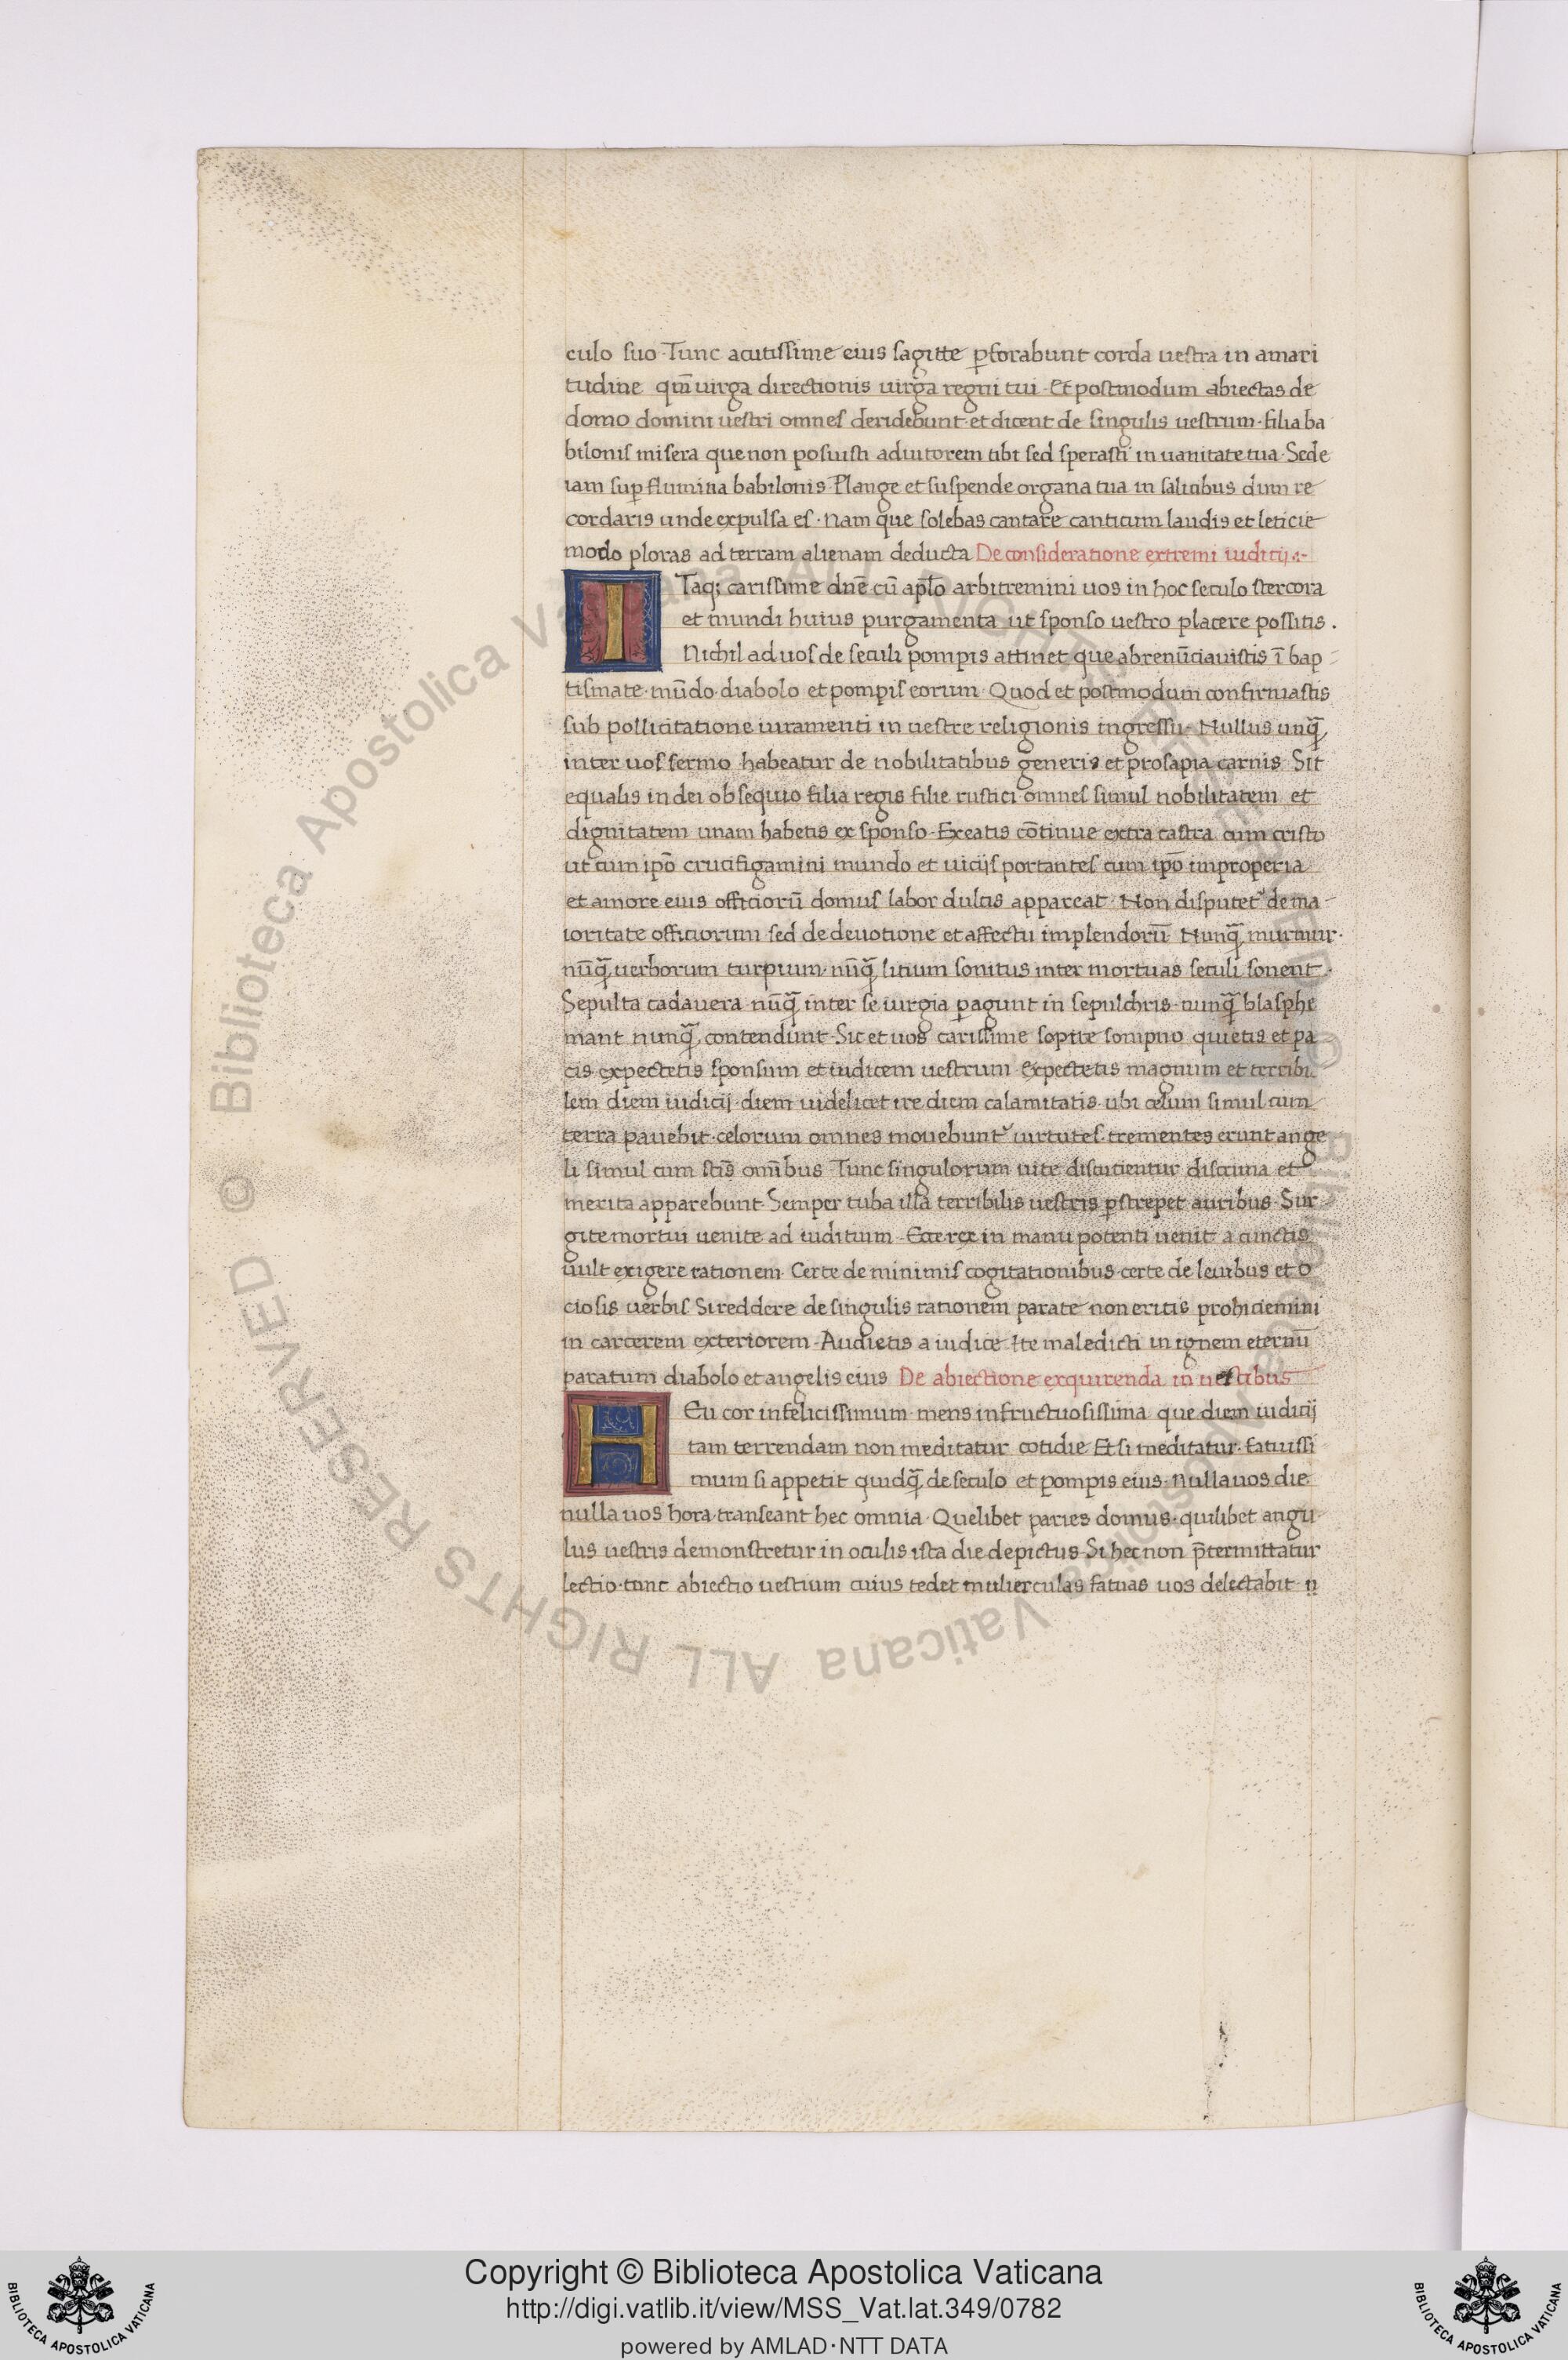 culo suo · Tunc acutissime eius sagitte ꝑforabunt corda uestra in amari
tudine qm̄ uirga directionis uirga regni tui · Et postmodum abiectas de
domo domini uestri omnes deridebunt · et dicent de singulis uestrum · filia ba
bilonis misera que non posuisti adiutorem tibi sed sperasti in uanitate tua · Sede
iam suꝑ flumina babilonis · Plange et suspende organa tua in salicibus dum re
cordaris unde expulsa es · Nam que solebas cantare canticum laudis et leticie
modo ploras ad terram alienam deducta De consideratione extremi iudicij ·:-
ITaq; carissime dn̄e cū apl̄o arbitremini uos in hoc seculo stercora
et mundi huius purgamenta ut sponso uestro placere possitis .
Nichil ad uos de seculi pompis attinet que abrenūciauistis ī bap
tismate · mūdo · diabolo et pompis eorum · Quod et postmodum confirmastis
sub pollicitatione iuramenti in uestre religionis ingressu · Nullus unq̄
inter uos sermo habeatur de nobilitatibus generis et prosapia carnis · Sit
equalis in dei obsequio filia regis filie rustici · omnes simul nobilitatem et
dignitatem unam habetis ex sponso · Exeatis cōtinue extra castra cum cristo
ut cum ipō crucifigamini mundo et uicijs portantes cum ipō improperia
et amore eius officiorū domus labor dulcis appareat · Non disputet᷑ de ma
ioritate officiorum sed de deuotione et affectu implendorū Nunq̄ murmur ·
nūq̄ uerborum turpium · nūq̄ litium sonitus inter mortuas seculi sonent ·
Sepulta cadauera nūq̄ inter se iurgia ꝑagunt in sepulchris · nunq̄ blasphe
mant nunq̄ contendunt · Sic et uos carissime sopite sompno quietis et pa
cis expectetis sponsum et iudicem uestrum · Expectetis magnum et terribi
lem diem iudicij · diem uidelicet ire diem calamitatis · ubi celum simul cum
terra pauebit · celorum omnes mouebunt᷑ uirtutes · trementes erunt ange
li simul cum sc̄is om̄ibus Tunc singulorum uite discutientur discrima et
merita apparebunt · Semper tuba illa terribilis uestris ꝑstrepet auribus · Sur
gite mortui uenite ad iuditium · Ecce rex in manu potenti uenit a cunctis
uult exigere rationem · Certe de minimis cogitationibus · certe de leuibus et o
ciosis uerbis Si reddere de singulis rationem parate non eritis prohiciemini
in carcerem exteriorem · Audietis a iudice · Ite maledicti in ignem eternū
paratum diabolo et angelis eius De abiectione exquirenda in uestibus
HEu cor infelicissimum · mens infructuosissima que diem iudicij
tam terrendam non meditatur cotidie Et si meditatur · fatuissi
mum si appetit quidq̄ de seculo et pompis eius · nulla uos die
nulla uos hora transeant hec omnia · Quelibet paries domus · quilibet angu
lus uestris demonstretur in oculis ista die depictus · Si hec non p̄termittatur
lectio · tunc abiectio uestium cuius tedet mulierculas fatuas uos delectabit · n
Copyright © Biblioteca Apostolica Vaticana
http://digi.vatlib.it/view/MSS_Vat.lat.349/0782
powered by AMLAD·NTT DATA
BIBLIOTECA APOSTOLICA VATICANA
BIBLIOTECA APOSTOLICA VATICANA
© Biblioteca Apostolica Vaticana ALL RIGHTS RESERVED
© Biblioteca Apostolica Vaticana ALL RIGHTS RESERVED